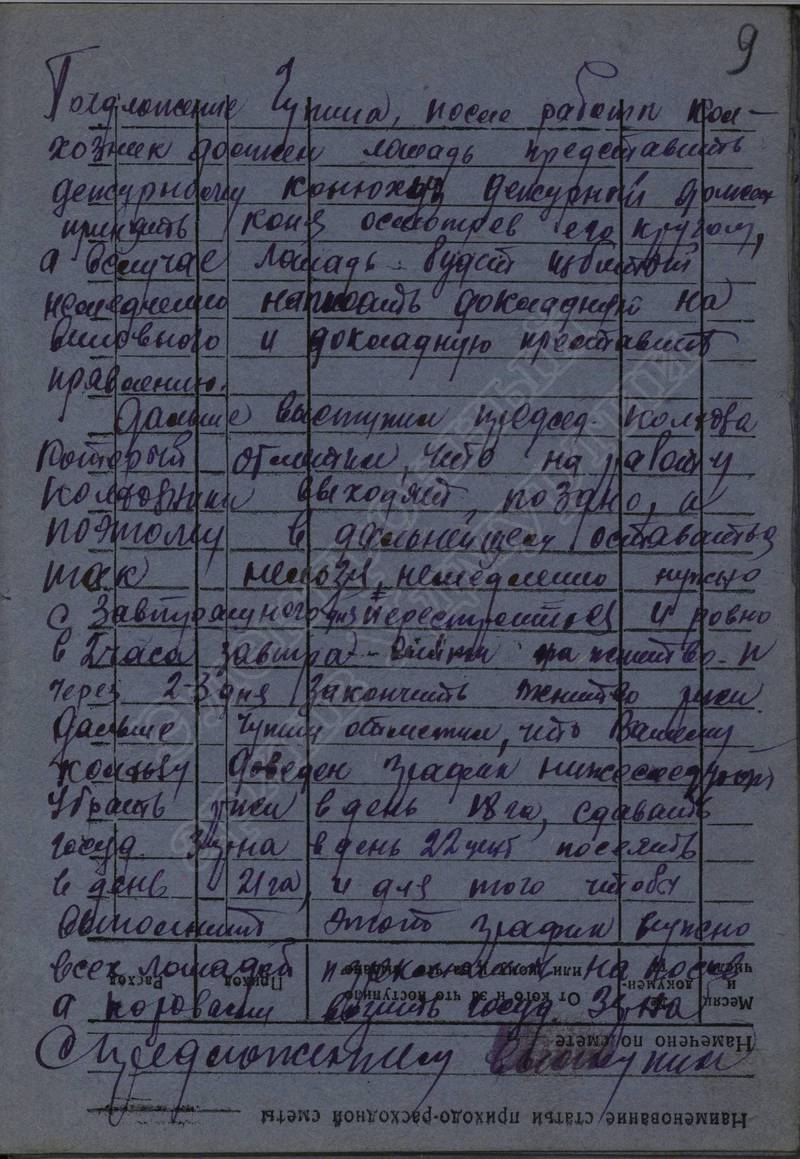 9
Предложение Чупина, после работы кол-
хозник должен лошадь представить
дежурному конюху, дежурный должен
принять коня осмотрев его кругом,
а в случае лошадь будет избитый
немедленно написать докладную на
виновного и докладную преставить
правлению.
Дальше выступил председ. колхоза
который отметил, что на работу
колхозники выходят, поздно, а
поэтому в дальнейшем оставаться
так нельзя, немедленно нужно
с завтрашнего дня перестроится и ровно
в 2 часа завтра выйти на жнитво и
через 2-3 дня закончить жнитво ржи.
Дальше Чупин отметил, что Вашему
колхозу доведен график нижеследующий
Убрать ржи в день 18 га, сдавать
госуд. Зерна в день 22 цент посеять
в день 21 га, и для того чтобы
выполнить этот график нужно
всех лошадей на посев
а коровами возить госуд. Зерно
С предложением выступил
Наименование статьи приходо-расходной сметы
Намечено по смете
Месяц и число
От кого и за что поступило или кому и за что выдано
Приход
Расход